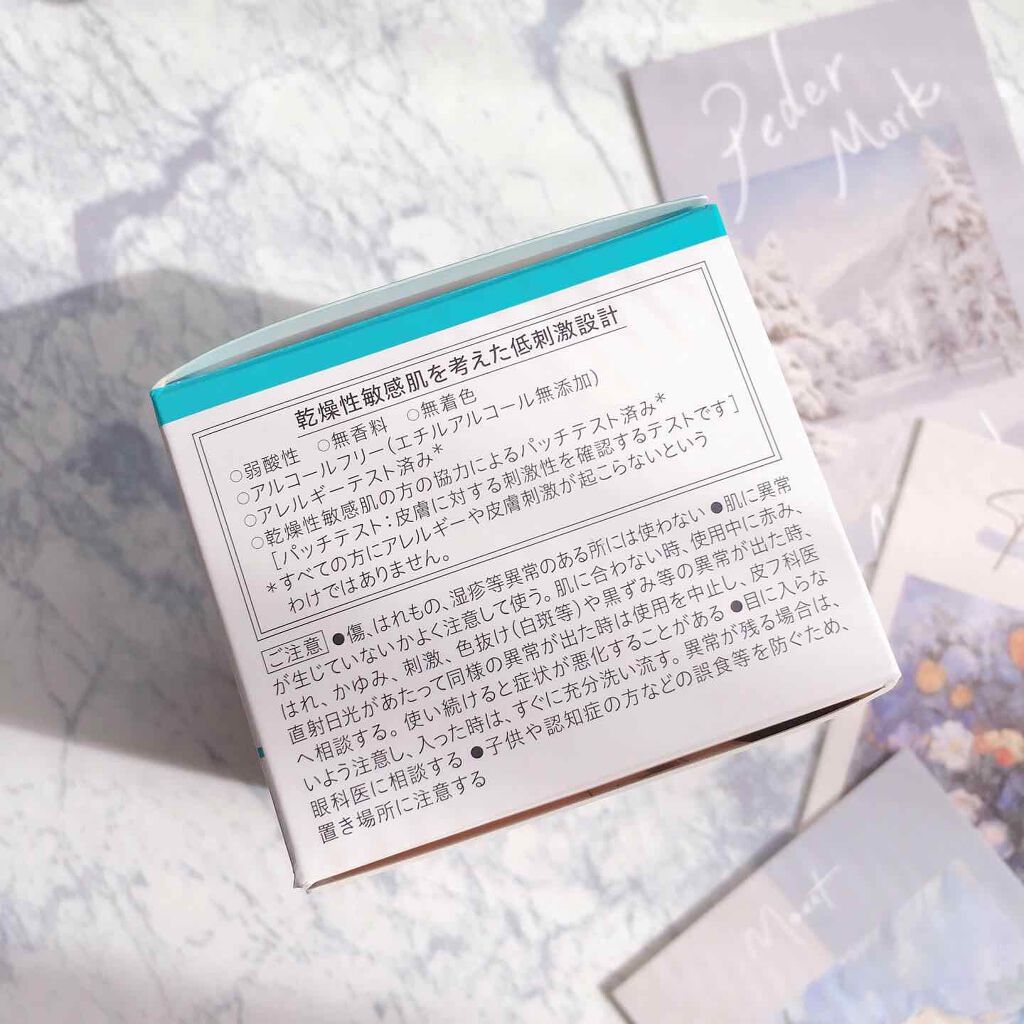 乾燥性敏感肌を考えた低刺激設計
○弱酸性 ○無香料 ○無着色
○アルコールフリー(エチルアルコール無添加)
○アレルギーテスト済み*
○乾燥性敏感肌の方の協力によるパッチテスト済み*
[パッチテスト:皮膚に対する刺激性を確認するテストです]
*すべての方にアレルギーや皮膚刺激が起こらないという
わけではありません。
ご注意 ●傷、はれもの、湿疹等異常のある所には使わない ●肌に異常
が生じていないかよく注意して使う。肌に合わない時、使用中に赤み、
はれ、かゆみ、刺激、色抜け(白斑等)や黒ずみ等の異常が出た時、
直射日光があたって同様の異常が出た時は使用を中止し、皮フ科医
へ相談する。使い続けると症状が悪化することがある ●目に入らな
いよう注意し、入った時は、すぐに充分洗い流す。異常が残る場合は、
眼科医に相談する ●子供や認知症の方などの誤食等を防ぐため、
置き場所に注意する
Peder
Mork
Mount